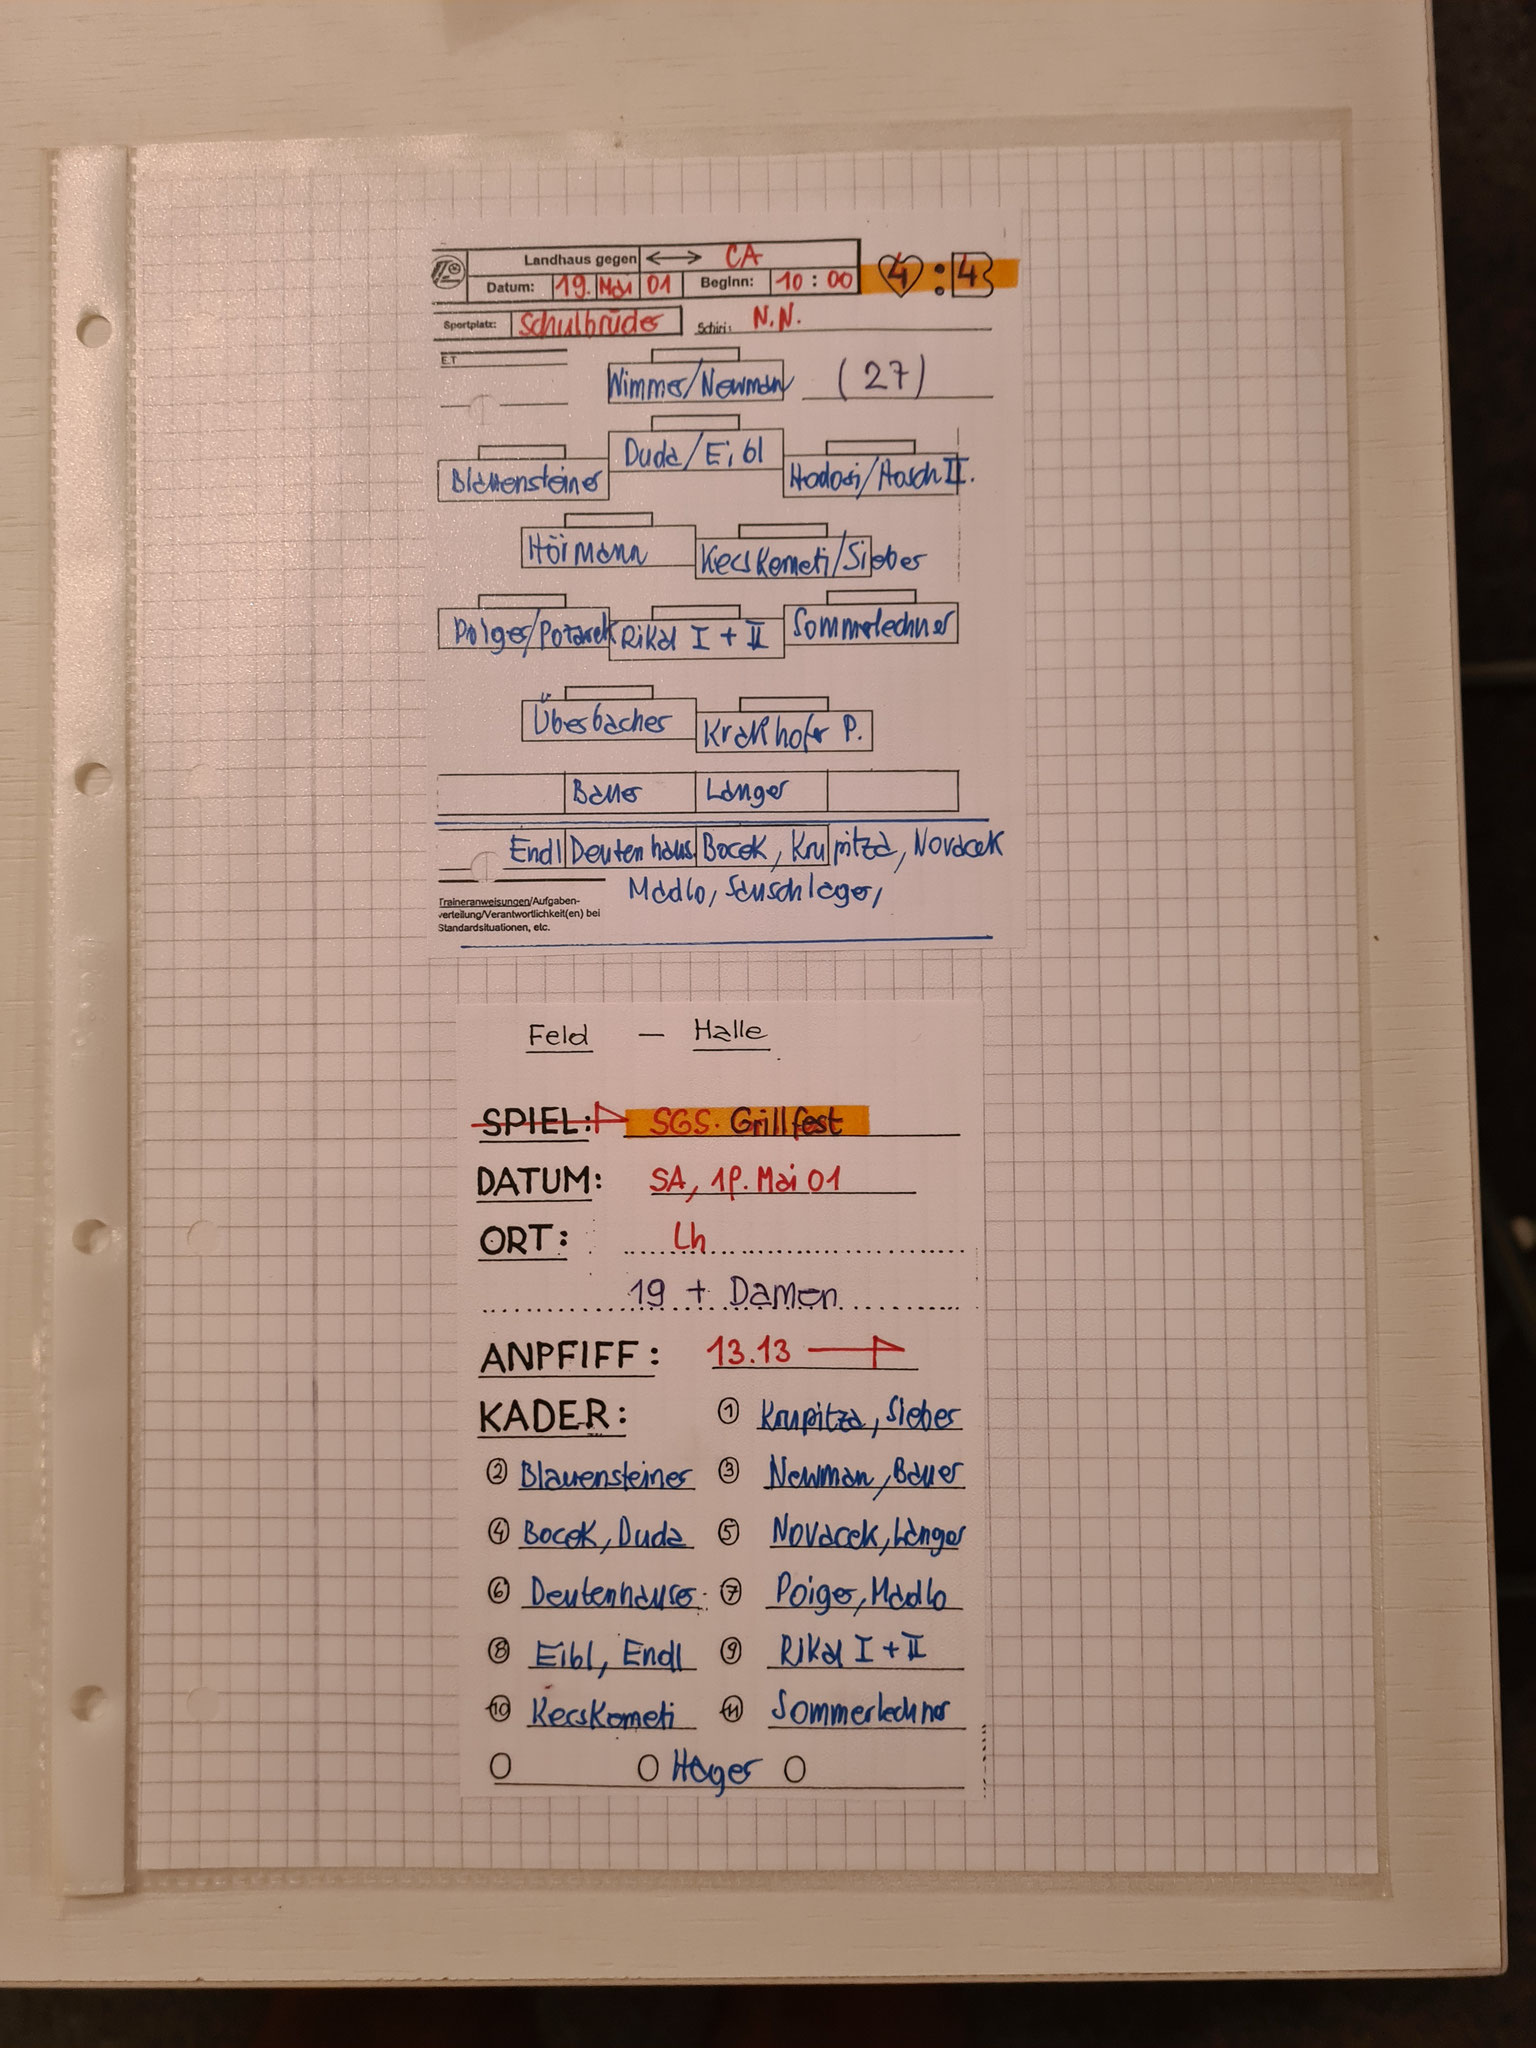 Landhaus gegen ⟷ CA 4 : 4
Datum: 19. Mai 01 Beginn: 10 : 00
Sportplatz: Schulbrüder Schiri: N.N.
E.T
Wimmer/Newman (27)
Duda/Eibl
Blauensteiner Hodosi/Hosch II.
Hörmann Kecskemeti/Sieber
Poiger/Potarek Rikal I + II Sommerlechner
Übesbacher Krakhofer P.
Bauer Langer
Endl Deutenhaus. Bocek, Krupitza, Novacek
Madlo, Sauschlager,
Traineranweisungen/Aufgaben-
verteilung/Verantwortlichkeit(en) bei
Standardsituationen, etc.
Feld — Halle
SPIEL: SGS. Grillfest
DATUM: SA, 19. Mai 01
ORT: Lh
19 + Damen
ANPFIFF: 13.13
KADER: ① Krupitza, Sieber
② Blauensteiner ③ Newman, Bauer
④ Bocek, Duda ⑤ Novacek, Langer
⑥ Deutenhauser ⑦ Poiger, Madlo
⑧ Eibl, Endl ⑨ Rikal I + II
⑩ Kecskemeti ⑪ Sommerlechner
Hager